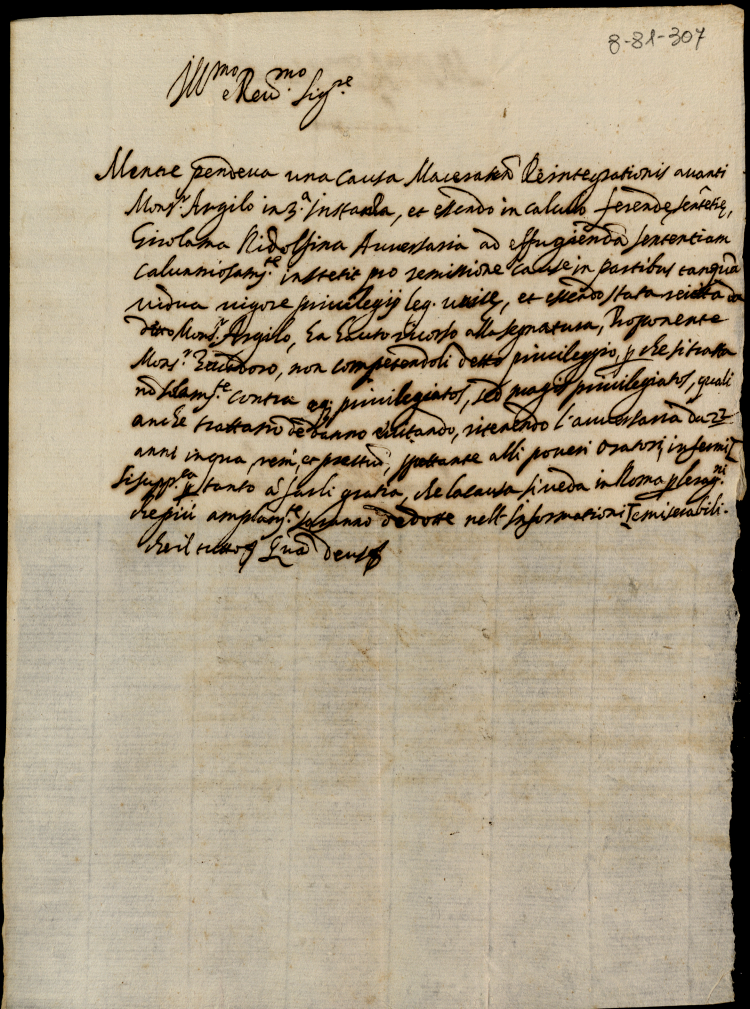 8-81-307
Ill.mo e Reu.mo Sig.re
Mentre pendeua una causa Maceraten Reintegrationis auanti
Mons.r Argilo in 3.a Instantia, et essendo in calculo ferendę sententię,
Girolama Ridolfina Auuersaria ad effugiendā sententiam
calunniosam.te institit pro remissione causę in partibus tanquā
uidua uigore priuilegij leg. unicę, et essendo stata reietta da
detto Mons.r Argilo, ha hauto ricorso alla segnatura, Proponente
Mons.r non competendoli detto priuileggio, p che si tratta
nō solam.te contra ęq; priuilegiatos, sed magis priuilegiatos, quali
anche trattano de damno uitando, ritenendo l'auuersaria da 22
anni in qua, rem, et pretiū, spettante alli poueri Oratori infermi
Si supp.ca p tanto à farli gratia, che la causa si ueda in Roma p le rag.ni
che più amplam.te saranno dedotte nell'Informationi [e miserabili.
che il tutto Quā Deus